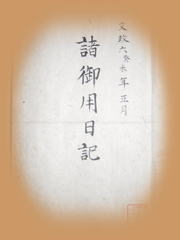 文政六癸未年正月
諸御用日記